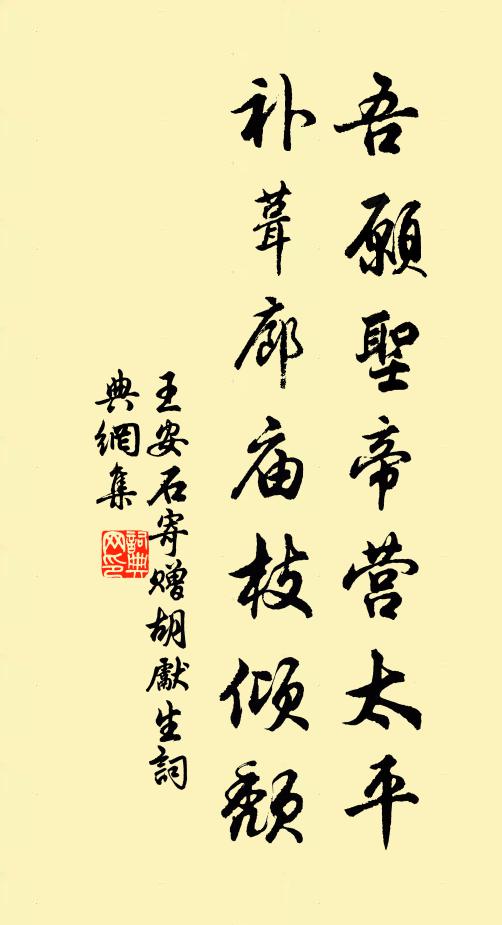 吾願聖帝营太平
补葺廊庙枝倾颓
王安石寄贈胡獻生詞
典網集
詞典
网印